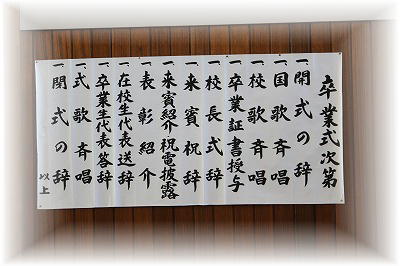 卒業式次第
一、開式の辞
一、国歌斉唱
一、校歌斉唱
一、卒業証書授与
一、校長式辞
一、来賓祝辞
一、来賓紹介祝電披露
一、表彰紹介
一、在校生代表送辞
一、卒業生代表答辞
一、式歌斉唱
一、閉式の辞
以上